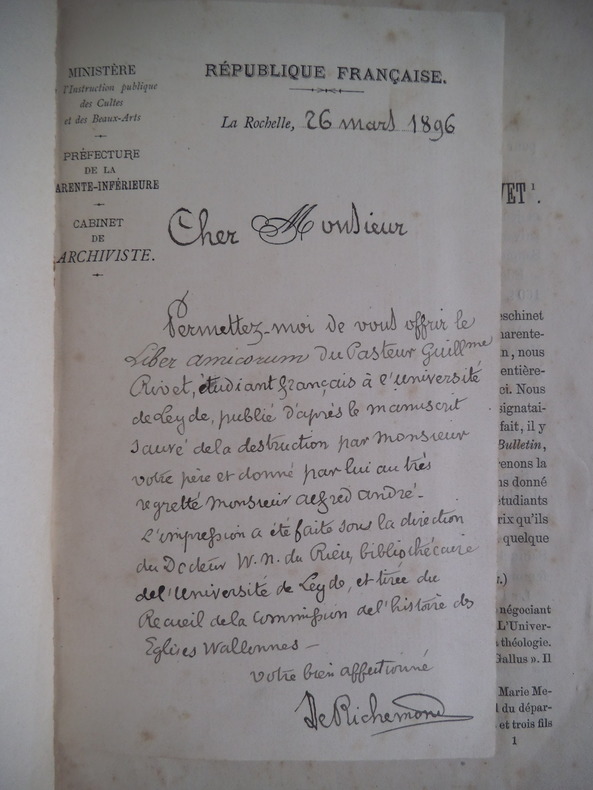 MINISTÈRE
l'Instruction publique
des Cultes
et des Beaux-Arts
PRÉFECTURE
DE LA
ARENTE-INFÉRIEURE
CABINET
DE
ARCHIVISTE.
RÉPUBLIQUE FRANÇAISE.
La Rochelle, 26 mars 1896
Cher Monsieur
Permettez-moi de vous offrir le
Liber amicorum du Pasteur Guillme
Rivet, étudiant français à l'université
de Leyde, publié d'après le manuscrit
sauvé de la destruction par monsieur
votre père et donné par lui au très
regretté monsieur alfred andré -
L'impression a été faite sous la direction
du Docteur W. N. du Rieu, bibliothécaire
de l'Université de Leyde, et tirée du
Recueil de la Commission de l'histoire des
Eglises Wallonnes -
votre bien affectionné
De Richemond
VET¹.
eschinet
harente-
n, nous
entière-
ci. Nous
signatai-
fait, il y
Bulletin,
renons la
ns donné
étudiants
rix qu'ils
, quelque
s.)
négociant
L'Univer-
théologie.
Gallus ». Il
Marie Me-
l du dépar-
et trois fils
1